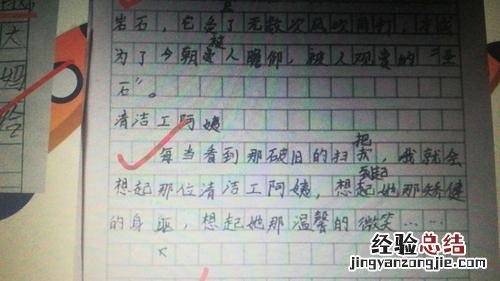 岩石，它名了无数次风吹雨打，才成
为了今朝被人瞻仰，被人观赏的“怪
石”。
清洁工阿姨
每当看到那破旧的扫把，我就会
想起那位清洁工阿姨，想起她那矫健
的身躯，想起她那温馨的微笑……
经验总结
jingyanzongjie.com